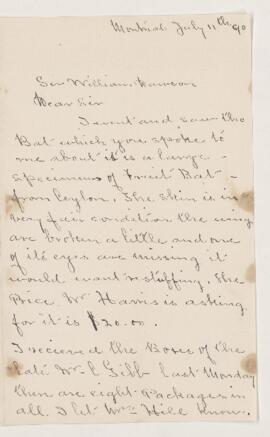 Montreal July 11th 90
Sir William Dawson
Dear Sir
I went and saw the
Bat which you spoke to
me about it is a large
specimens of Fruit Bat
from Ceylon. The skin is in
very fair condition the wing
are broken a little and one
of its eyes are missing it
would want restuffing. The
Price Mr Harris is asking
for it is $20.00.
I recieved the Boxes of the
late Mr C Gibb last Monday
there are eight Packages in
all. I let Mrs Hill know.